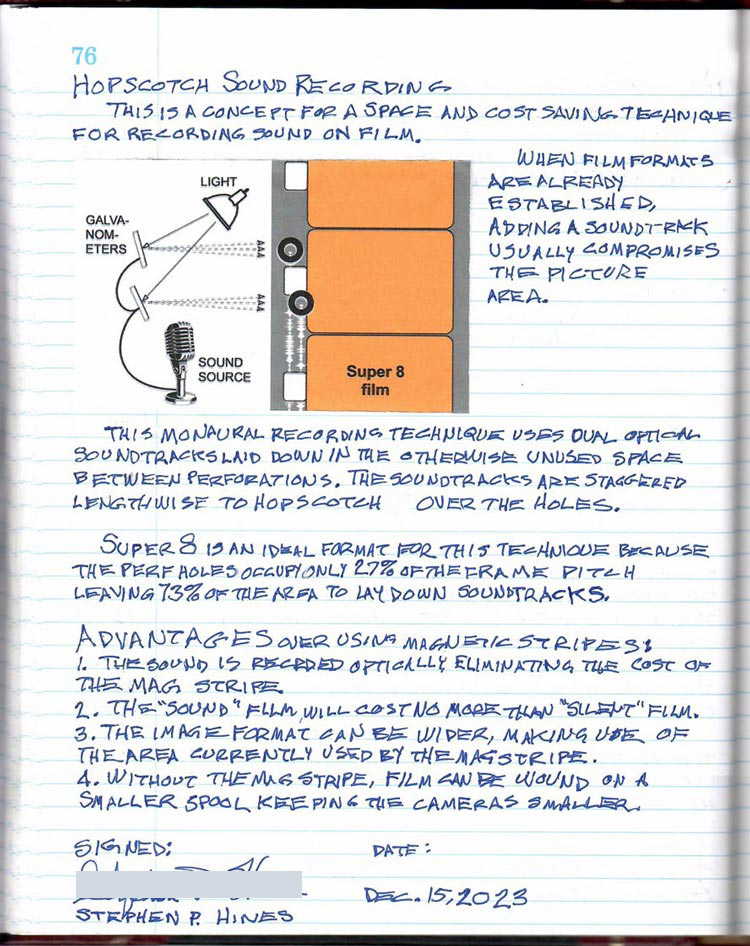 76
HOPSCOTCH SOUND RECORDING
THIS IS A CONCEPT FOR A SPACE AND COST SAVING TECHNIQUE
FOR RECORDING SOUND ON FILM.
LIGHT
GALVA-
NOM-
ETERS
SOUND
SOURCE
Super 8
film
WHEN FILM FORMATS
ARE ALREADY
ESTABLISHED,
ADDING A SOUNDTRACK
USUALLY COMPROMISES
THE PICTURE
AREA.
THIS MONAURAL RECORDING TECHNIQUE USES DUAL OPTICAL
SOUNDTRACKS LAID DOWN IN THE OTHERWISE UNUSED SPACE
BETWEEN PERFORATIONS. THE SOUNDTRACKS ARE STAGGERED
LENGTHWISE TO HOPSCOTCH OVER THE HOLES.
SUPER 8 IS AN IDEAL FORMAT FOR THIS TECHNIQUE BECAUSE
THE PERF HOLES OCCUPY ONLY 27% OF THE FRAME PITCH
LEAVING 73% OF THE AREA TO LAY DOWN SOUNDTRACKS.
ADVANTAGES OVER USING MAGNETIC STRIPES:
1. THE SOUND IS RECRDED OPTICALLY ELIMINATING THE COST OF
THE MAG STRIPE.
2. THE "SOUND" FILM WILL COST NO MORE THAN "SILENT" FILM.
3. THE IMAGE FORMAT CAN BE WIDER, MAKING USE OF
THE AREA CURRENTLY USED BY THE MAG STRIPE.
4. WITHOUT THE MAG STRIPE, FILM CAN BE WOUND ON A
SMALLER SPOOL KEEPING THE CAMERAS SMALLER.
SIGNED:
DATE:
DEC. 15, 2023
STEPHEN P. HINES